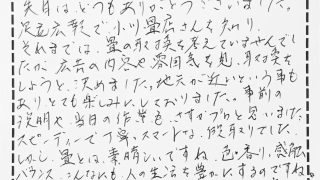 先日はどうもありがとうございました。
足立広報で小川畳店さんを知り
それまでは、畳の取り替えを考えていませんでし
たが、広告の内容や雰囲気を見、取り替えを
しようと、決めました。地元が近いという事も
あり、とても楽しみにしておりました。事前の
説明や、当日の作業も、さすがプロと思いました
スピーディーで丁寧、スマートな、段取りでした。
しかし、畳とは、素晴しいですね。色・香り・感触
バランス、こんなにも人の生活を豊かにするのですね。